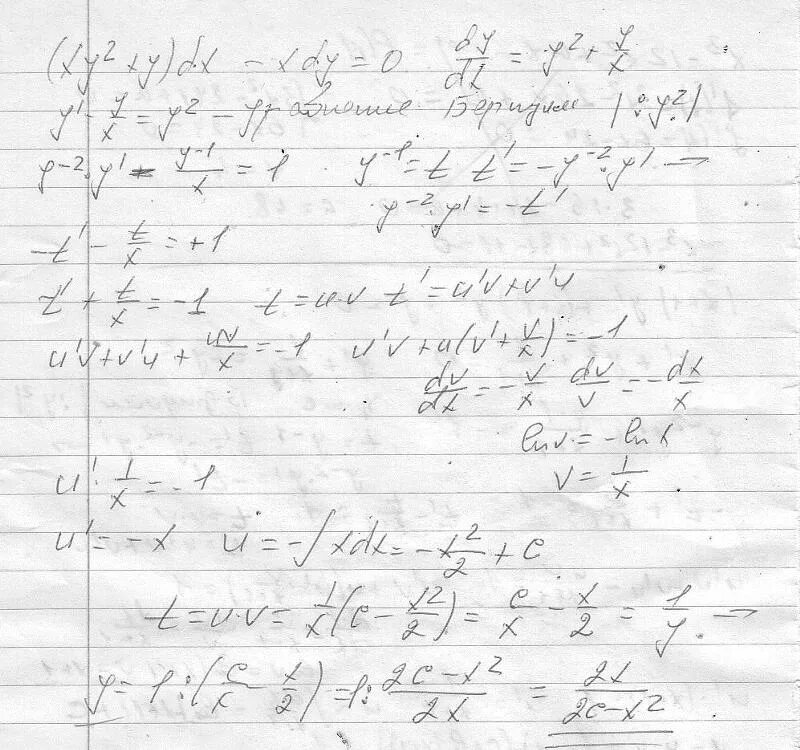 (xy² + y)dx - xdy = 0 dy/dx = y² + y/x
y' - y/x = y² - уравнение Бернулли |: y²|
y⁻²·y' - y⁻¹/x = 1 y⁻¹ = t t' = -y⁻²·y' →
y⁻²·y' = -t'
-t' - t/x = +1
t' + t/x = -1 t = u·v t' = u'v + v'u
u'v + v'u + uv/x = -1 u'v + u(v' + v/x) = -1
dv/dx = -v/x dv/v = -dx/x
lnv = -lnx
u'·1/x = -1 v = 1/x
u' = -x u = -∫xdx = -x²/2 + c
t = u·v = 1/x(c - x²/2) = c/x - x/2 = 1/y →
y = 1:(c/x - x/2) = 1: (2c - x²)/2x = 2x/(2c - x²)